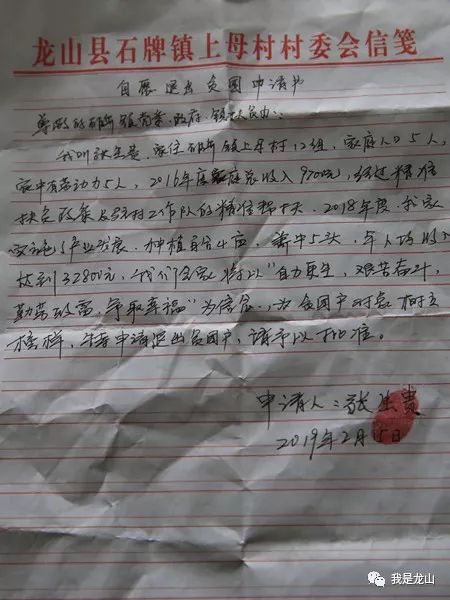 龙山县石牌镇上母村村委会信笺
自愿退出贫困申请书
尊敬的石牌镇党委、政府、镇扶贫办:
我叫张生贵,家住石牌镇上母村12组,家庭人口5人,
家中有劳动力5人,2016年度家庭总收入9700元,经过精准
扶贫政策及驻村工作队的精准帮扶,2018年度,我家
产业发展,种植 4亩,养牛5头,年人均收入
达到32800元,我们全家将以"自力更生,艰苦奋斗,
勤劳致富,争取幸福"为信念,为贫困户对象树立
榜样,特申请退出贫困户,请予以批准。
申请人:张生贵
2019年2月15日
我是龙山